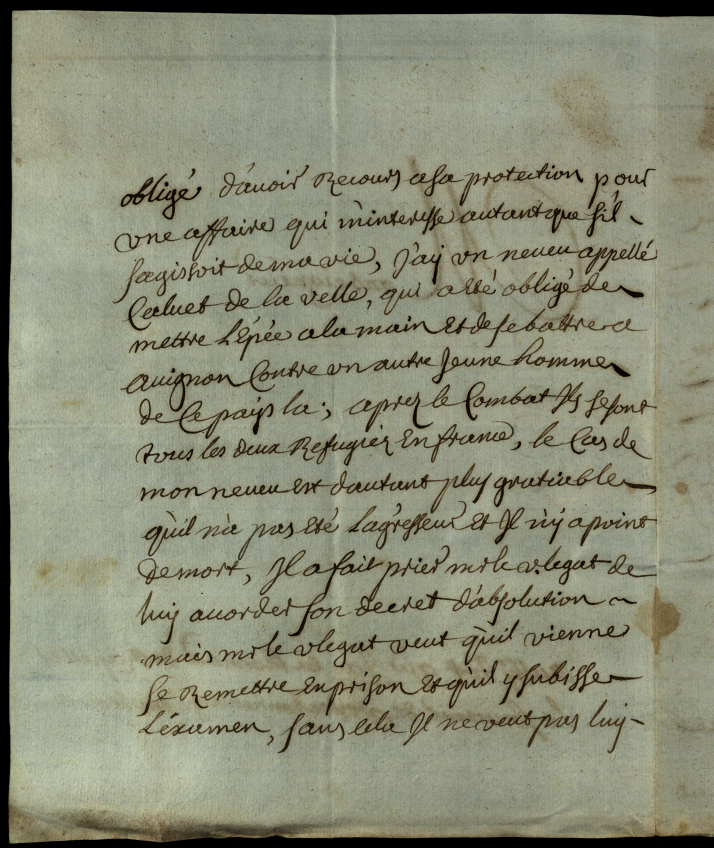 obligé d'auoir Recours a sa protection pour
vne affaire qui m'interesse autant que s'il
s'agissoit de ma vie, J'ay vn neueu appellé
Caluet de la velle, qui a eté obligé de
mettre L'épée a la main Et de se battre a
auignon Contre vn autre Jeune homme
de Ce païs la; aprez le Combat Jls se sont
tous les deux Refugiez En france, le Cas de
mon neueu est d'autant plus gratiable
qu'il n'a pas Eté L'agresseur Et Jl n'y a point
de mort, Jl a fait prier mr le v. legat de
luy accorder son decret d'absolution
mais mr le v legat veut qu'il vienne
se Remettre En prison Et qu'il y subisse
L'examen, sans cela Jl ne veut pas luy